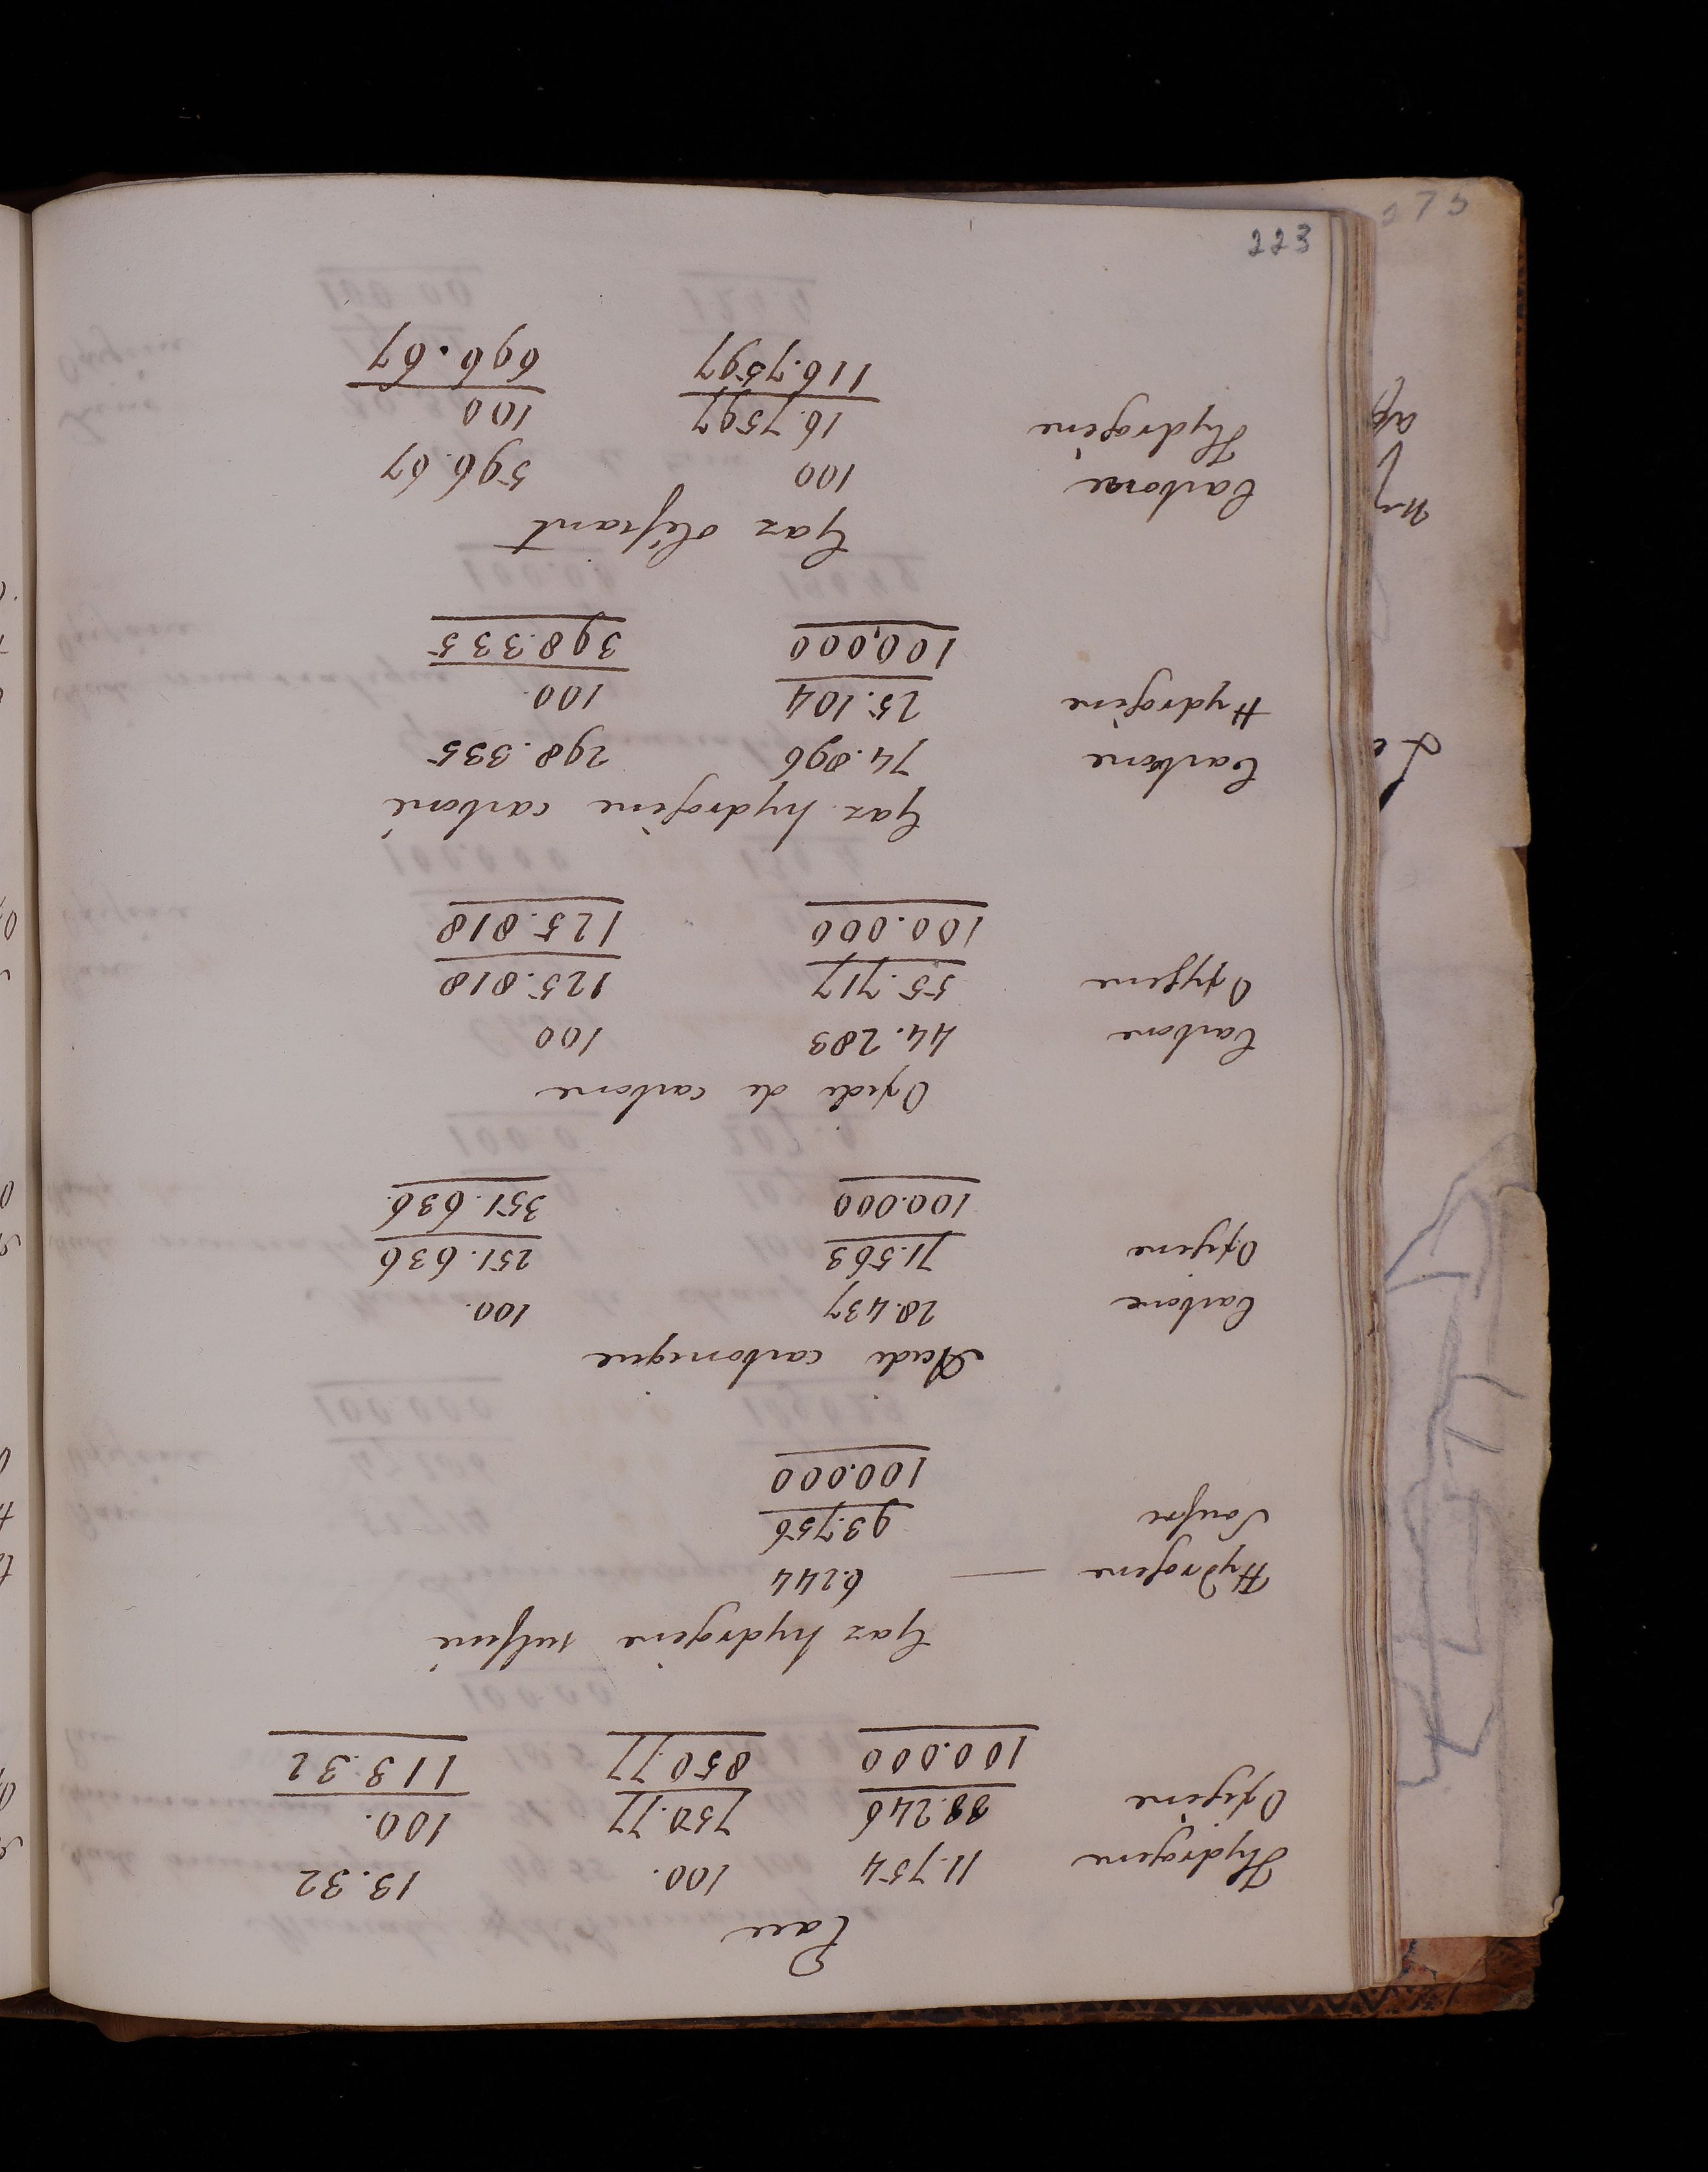 Eau
Hydrogene 11.754 100. 13.32
Oxigène 88.246 750.77 100.
100.000 850.77 113.32
Gaz hydrogène sulfuré
Hydrogene — 6.244
Soufre 93.756
100.000
Acide carbonique
Carbone 28.437 100.
Oxigene 71.563 251.636
100.000 351.636.
Oxide de carbone
Carbone 44.283 100
Oxygene 55.717 125.818
100.000 125.818
Gaz hydrogène carboné
Carbone 74.896 298.335
Hydrogène 25.104 100.
100,000 398.335
Gaz oléfiant
Carbone 100 596.67
Hydrogène 16.7597 100
116.7597 696.67
223
275